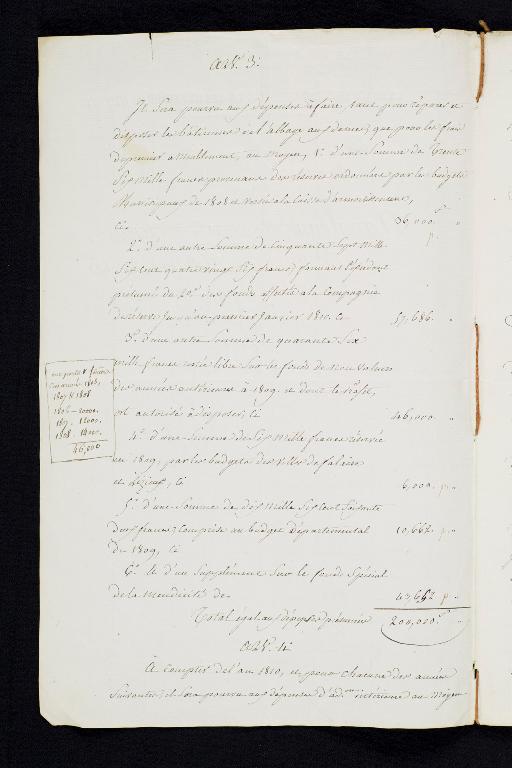 Art. 3.
Il sera pourvu aux dépenses à faire, tant pour réparer et
disposer les bâtiments de l'abbaye aux dames, que pour les frais
du premier ameublement, au moyen, 1° d'une somme de trente
six mille francs provenant des réserves ordonnées par les budgets
municipaux de 1808 et versée à la caisse d'amortissement,
ci 36,000.
2° d'une autre somme de cinquante sept mille
six cent quatre vingt six francs formant l'excédent
présumé du 20e des fonds affectés à la compagnie
de réserve jusqu'au premier janvier 1810. ci 57,686.
3° d'une autre somme de quarante six
mille francs restée libre sur les fonds de non valeurs
des années antérieures à 1809. et dont le Préfet
est autorisé à disposer, ci 46,000.
1806, 1807 & 1808
1806 — 20000.
1807. 12000.
1808. 14000.
46,000
4° d'une somme de six mille francs réservée
en 1809, par les budgets des villes de falaise
et Lizieux, ci 6,000.
5° d'une somme de dix mille six cent soixante
deux francs, comprise au budget départemental 10,662.
de 1809, ci
6° et d'un supplément sur le fonds spécial
de la mendicité de 43,652
Total égal aux dépenses présumées 200,000.
Art. 4.
à compter de l'an 1810, et pour chacune des années
suivantes, il sera pourvu aux dépenses d'ad.on intérieure au moyen